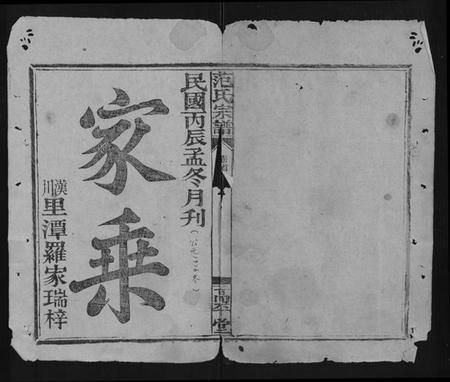 范氏宗譜
卷首
堂
民國丙辰孟冬月刊
家乘
漢川里潭羅家瑞梓